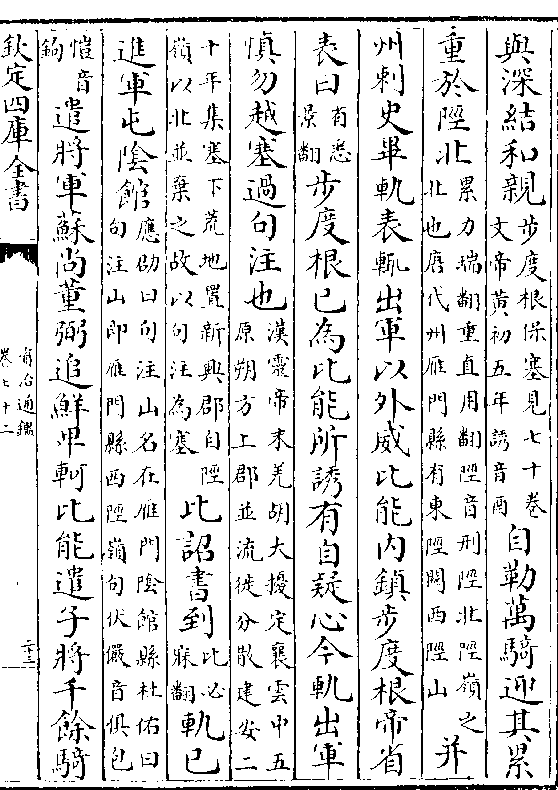 與深結和親步度根保塞見七十卷文帝黃初五年誘音酉自勒萬騎迎其累
重於陘北累力瑞翻重直用翻陘音刑陘北陘嶺之北也唐代州雁門縣有東陘關西陘山并
州刺史畢軌表輒出軍以外威比能內鎮步度根帝省
表曰省悉景翻步度根已為比能所誘有自疑心今軌出軍
慎勿越塞過句注也漢靈帝末羌胡大擾定襄雲中五原朔方上郡並流徙分散建安二
十年集塞下荒地置新興郡自陘嶺以北並棄之故以句注為塞比詔書到比必寐翻軌已
進軍屯陰館應劭曰句注山名在雁門陰館縣杜佑曰句注山即雁門縣西陘嶺句伏儼音俱包
愷音鉤遣將軍蘇尚董弼追鮮卑軻比能遣子將千餘騎
欽定四庫全書
資治通鑑
卷七十二
二十三